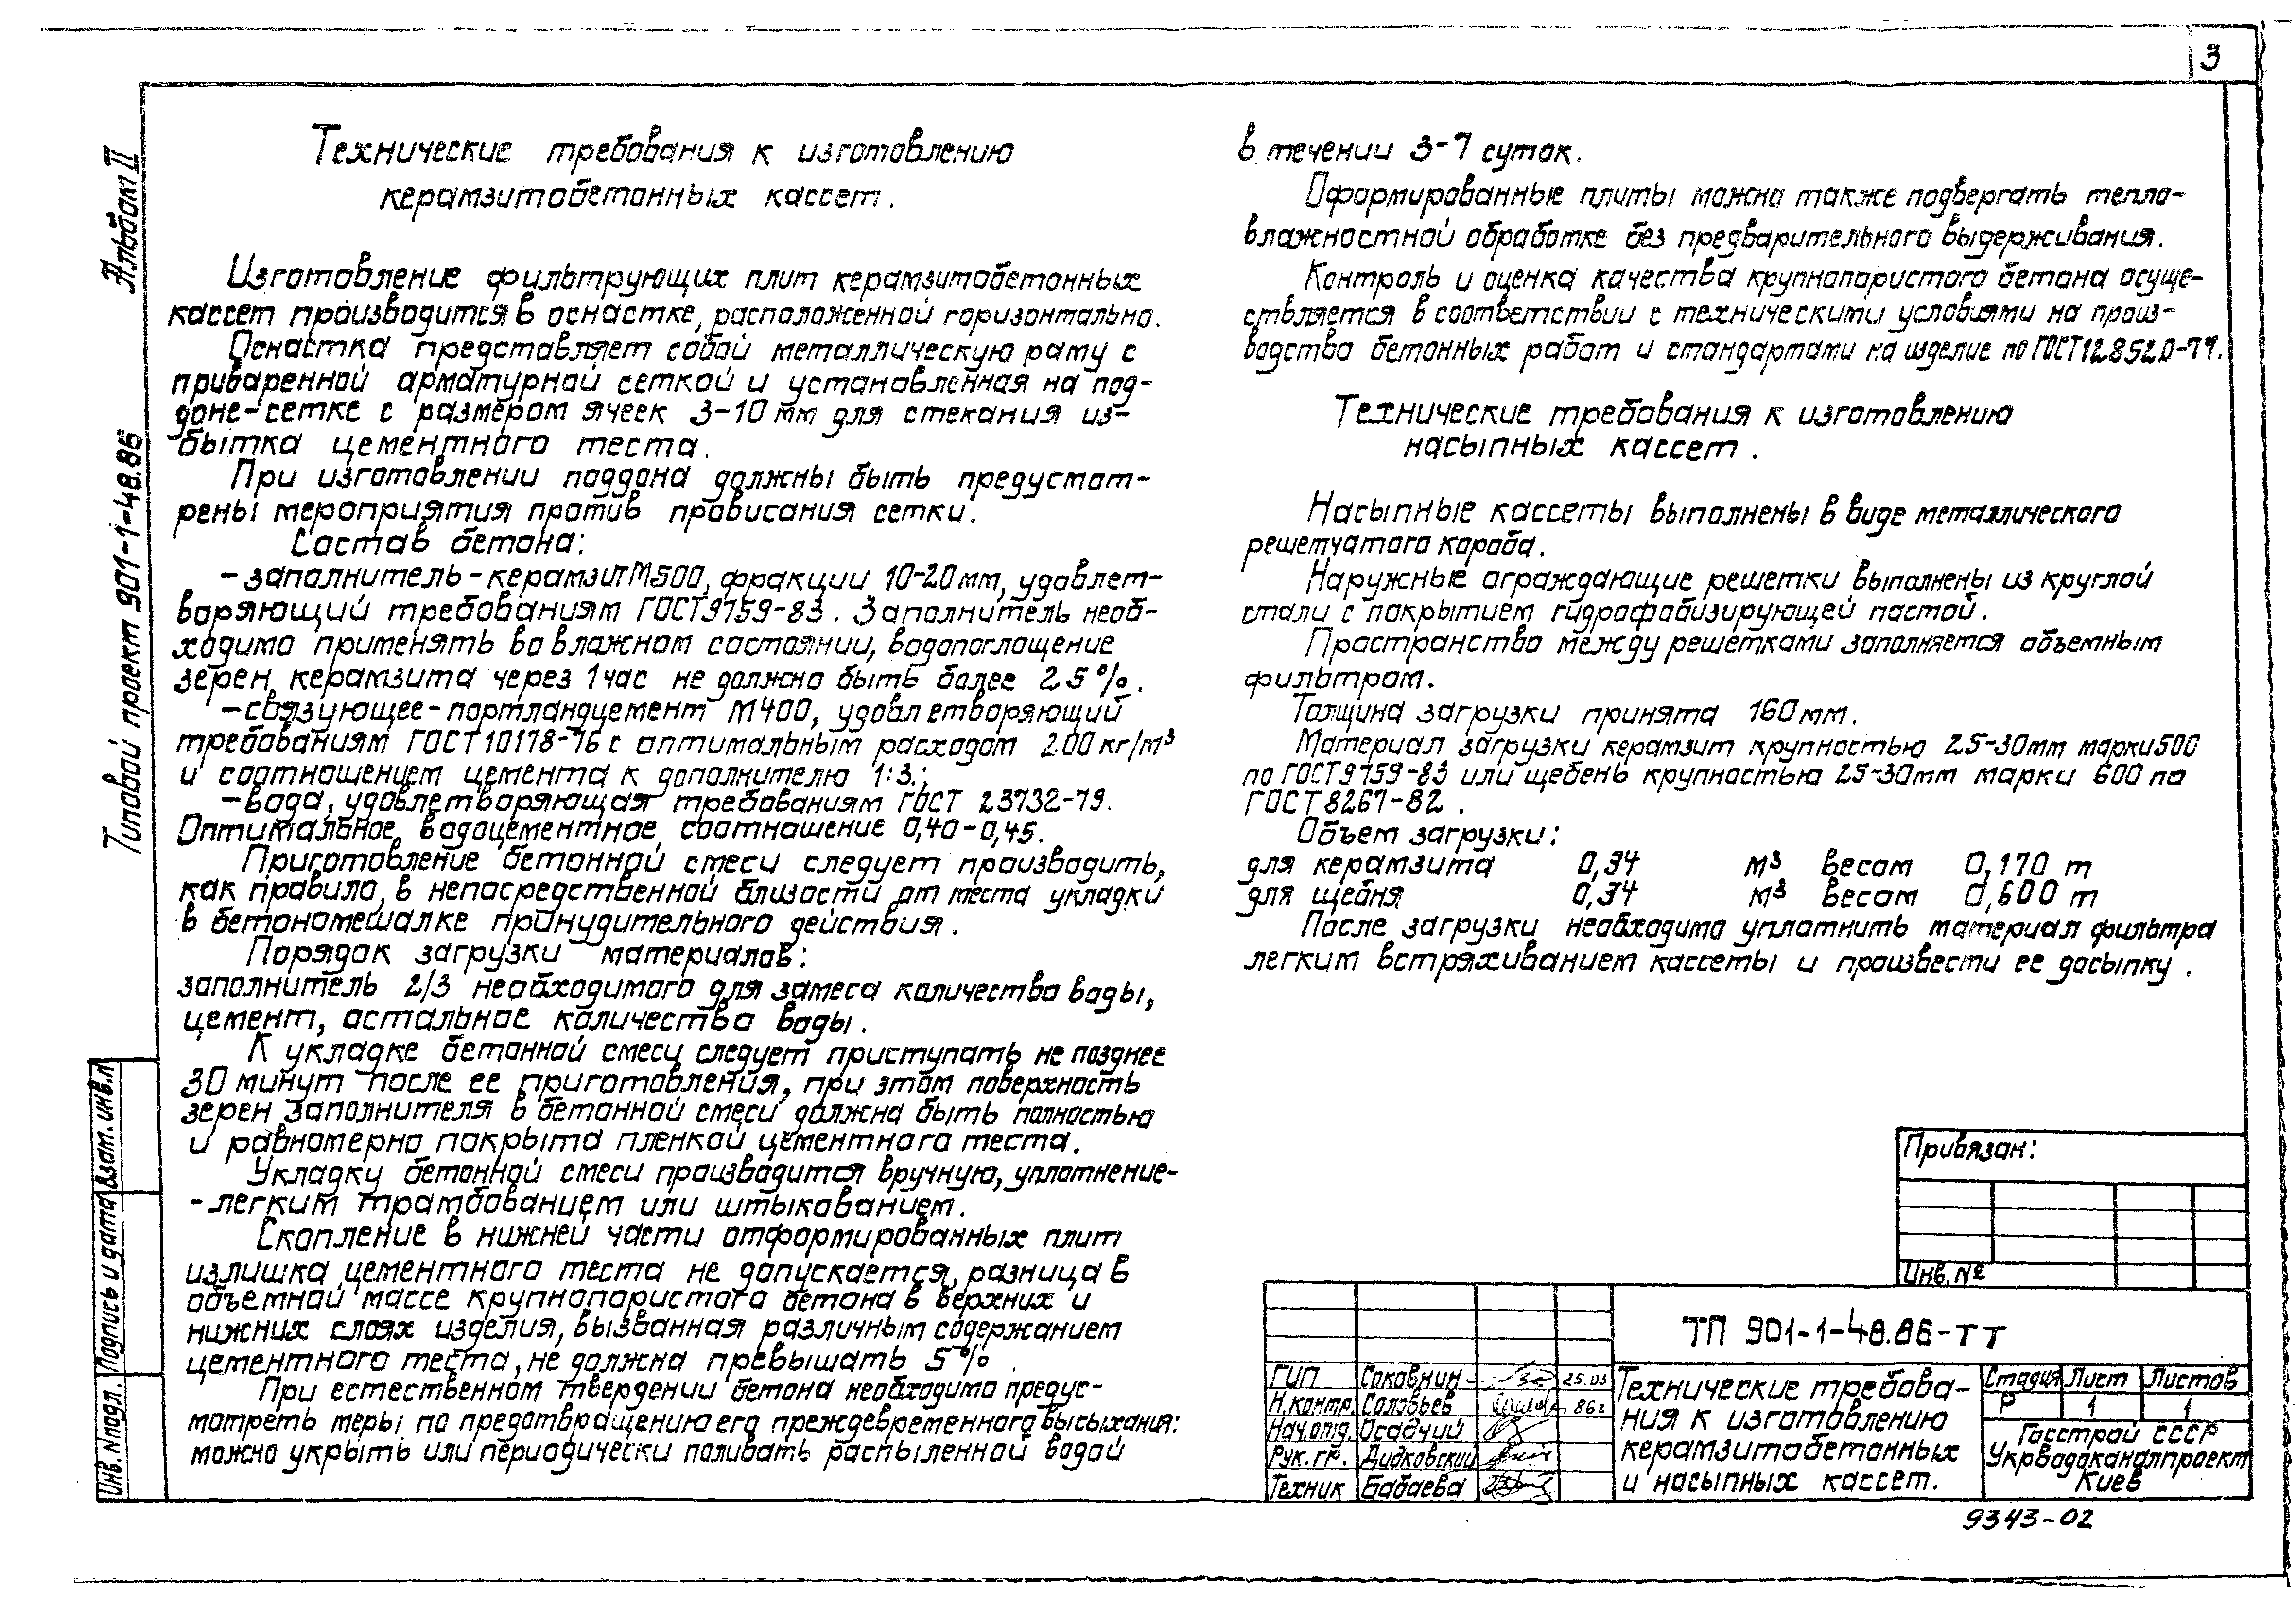 3
Альбом II
Типовой проект 901-1-48.86
Технические требования к изготовлению
керамзитобетонных кассет.
Изготовление фильтрующих плит керамзитобетонных
кассет производится в оснастке, расположенной горизонтально.
Оснастка представляет собой металлическую раму с
приваренной арматурной сеткой и установленная на под-
доне-сетке с размером ячеек 3-10 мм для стекания из-
бытка цементного теста.
При изготовлении поддона должны быть предусмот-
рены мероприятия против провисания сетки.
Состав бетона:
-заполнитель-керамзит М500, фракции 10-20мм, удовлет-
воряющий требованиям ГОСТ9759-83. Заполнитель необ-
ходимо применять во влажном состоянии, водопоглощение
зерен керамзита через 1 час не должно быть более 25%.
-связующее-портландцемент М400, удовлетворяющий
требованиям ГОСТ10178-76 с оптимальным расходом 200 кг/м³
и соотношением цемента к дополнителю 1:3.;
-вода, удовлетворяющая требованиям ГОСТ 23732-79.
Оптимальное водоцементное соотношение 0,40-0,45.
Приготовление бетонной смеси следует производить,
как правило, в непосредственной близости от места укладки
в бетономешалке принудительного действия.
Порядок загрузки материалов:
заполнитель 2/3 необходимого для замеса количества воды,
цемент, остальное количество воды.
К укладке бетонной смеси следует приступать не позднее
30 минут после ее приготовления, при этом поверхность
зерен заполнителя в бетонной смеси должна быть полностью
и равномерно покрыта пленкой цементного теста.
Укладку бетонной смеси производится вручную, уплотнение-
-легким трамбованием или штыкованием.
Скопление в нижней части отформированных плит
излишка цементного теста не допускается, разница в
объемной массе крупнопористого бетона в верхних и
нижних слоях изделия, вызванная различным содержанием
цементного теста, не должна превышать 5%.
При естественном твердении бетона необходимо предус-
мотреть меры по предотвращению его преждевременного высыхания:
можно укрыть или периодически поливать распыленной водой
в течении 3-7 суток.
Оформированные плиты можно также подвергать тепло-
влажностной обработке без предварительного выдерживания.
Контроль и оценка качества крупнопористого бетона осуще-
ствляется в соответствии с техническими условиями на произ-
водство бетонных работ и стандартами на изделие по ГОСТ12852.0-77.
Технические требования к изготовлению
насыпных кассет.
Насыпные кассеты выполнены в виде металлического
решетчатого короба.
Наружные ограждающие решетки выполнены из круглой
стали с покрытием гидрофобизирующей пастой.
Пространство между решетками заполняется объемным
фильтром.
Толщина загрузки принята 160мм.
Материал загрузки керамзит крупностью 25-30мм марки 500
по ГОСТ9759-83 или щебень крупностью 25-30мм марки 600 по
ГОСТ8267-82.
Объем загрузки:
для керамзита 0,34 м³ весом 0,170 т
для щебня 0,34 м³ весом 0,600 т
После загрузки необходимо уплотнить материал фильтра
легким встряхиванием кассеты и произвести ее досыпку.
Взам. инв. №
Подпись и дата
Инв. № подл.
Привязан:
Инв. №
ТП 901-1-48.86-ТТ
ГИП Соковнин 25.03
Н.контр. Соловьев 86г
Нач.отд. Осадчий
Рук. гр. Дидковский
Техник Бабаева
Технические требова-
ния к изготовлению
керамзитобетонных
и насыпных кассет.
Стадия Лист Листов
Р 1 1
Госстрой СССР
Укрводоканалпроект
Киев
9343-02